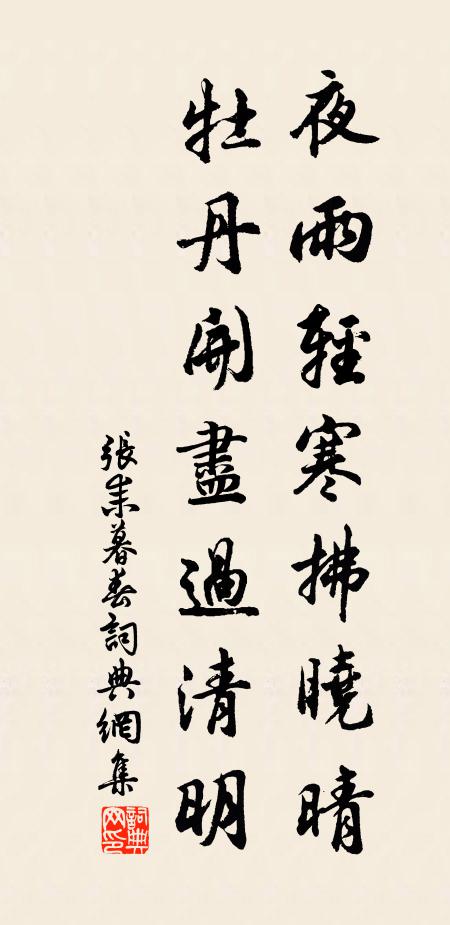 夜雨輕寒拂曉晴
牡丹開盡過清明
張耒暮春詞典網集
詞典网印